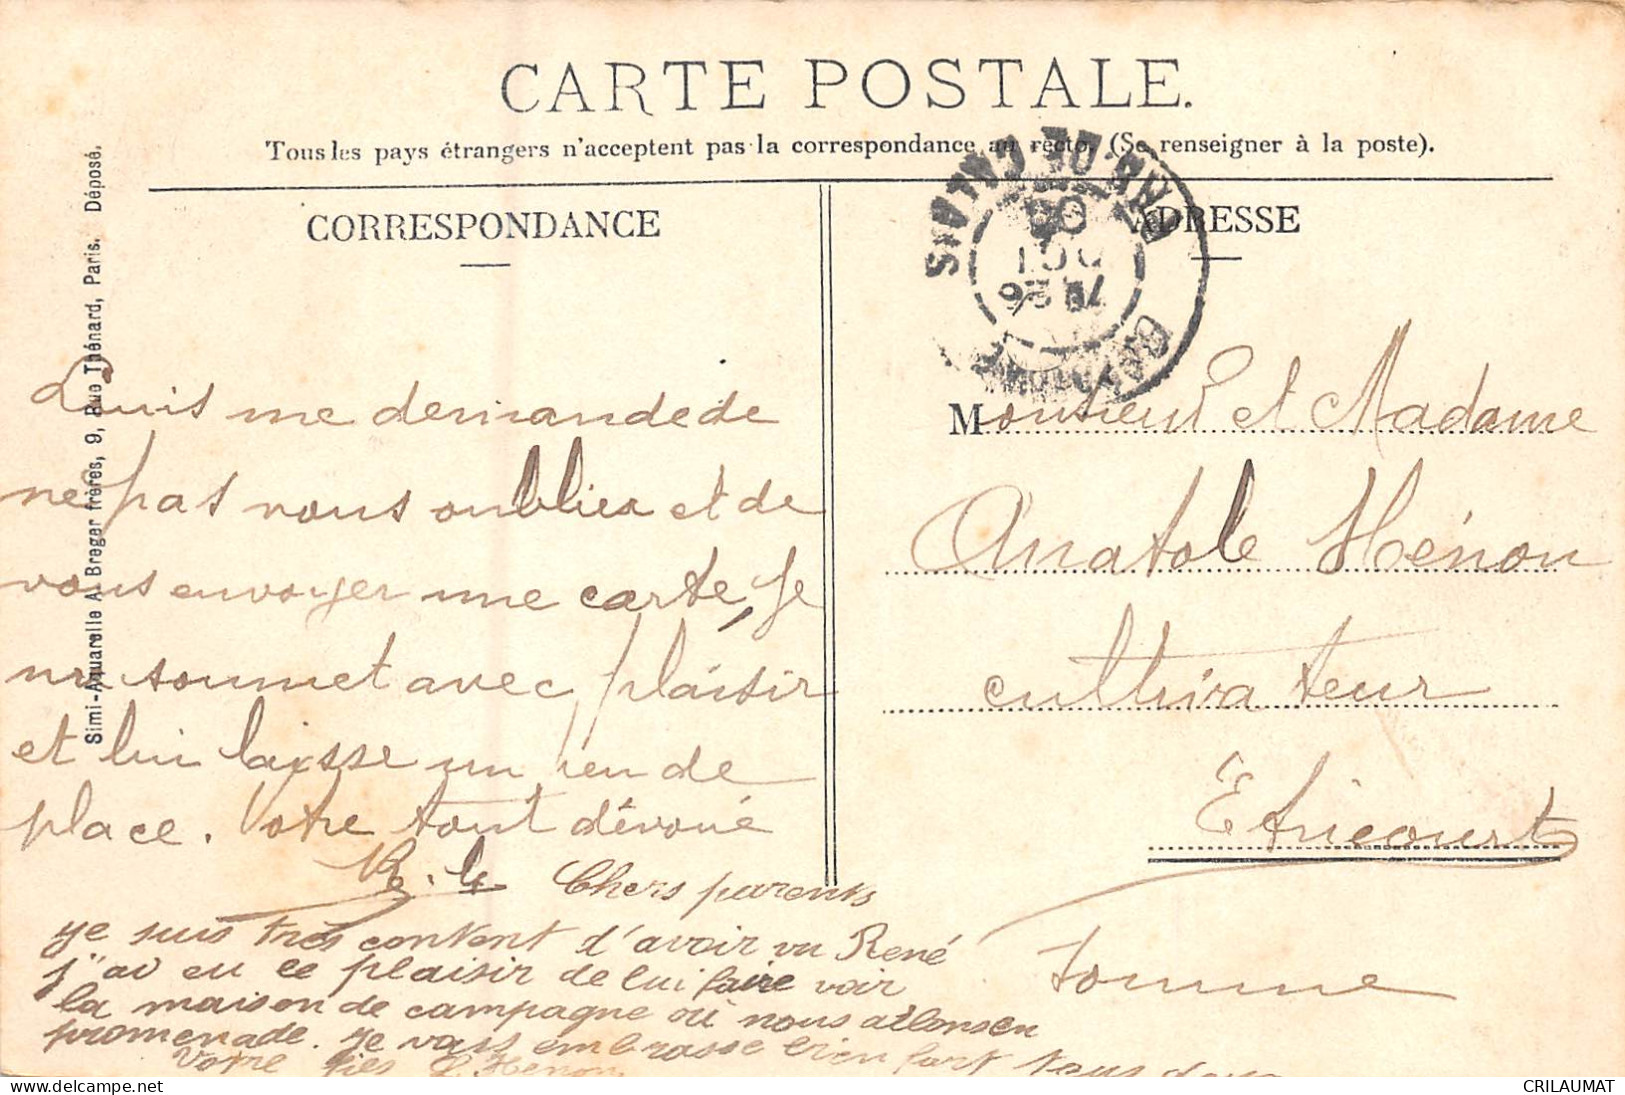 CARTE POSTALE.
Tous les pays étrangers n'acceptent pas la correspondance au recto. (Se renseigner à la poste).
CORRESPONDANCE
Louis me demande de
ne pas vous oublier et de
vous envoyer une carte, je
me soumet avec plaisir
et lui laisse un peu de
place. Votre tout dévoué
Chers parents
je suis très content d'avoir vu René
j'ai eu ce plaisir de lui faire voir
la maison de campagne où nous allons en
promenade. je vous embrasse bien fort tous deux
Votre fils L. Henon
ADRESSE
PAS-DE-CALAIS
26 OCT 08
Monsieur et Madame
Anatole Hénon
cultivateur
Etricourt
Somme
Simi-Aquarelle A. Breger frères, 9, Rue Thénard, Paris. Déposé.
delcampe.net
CRILAUMAT